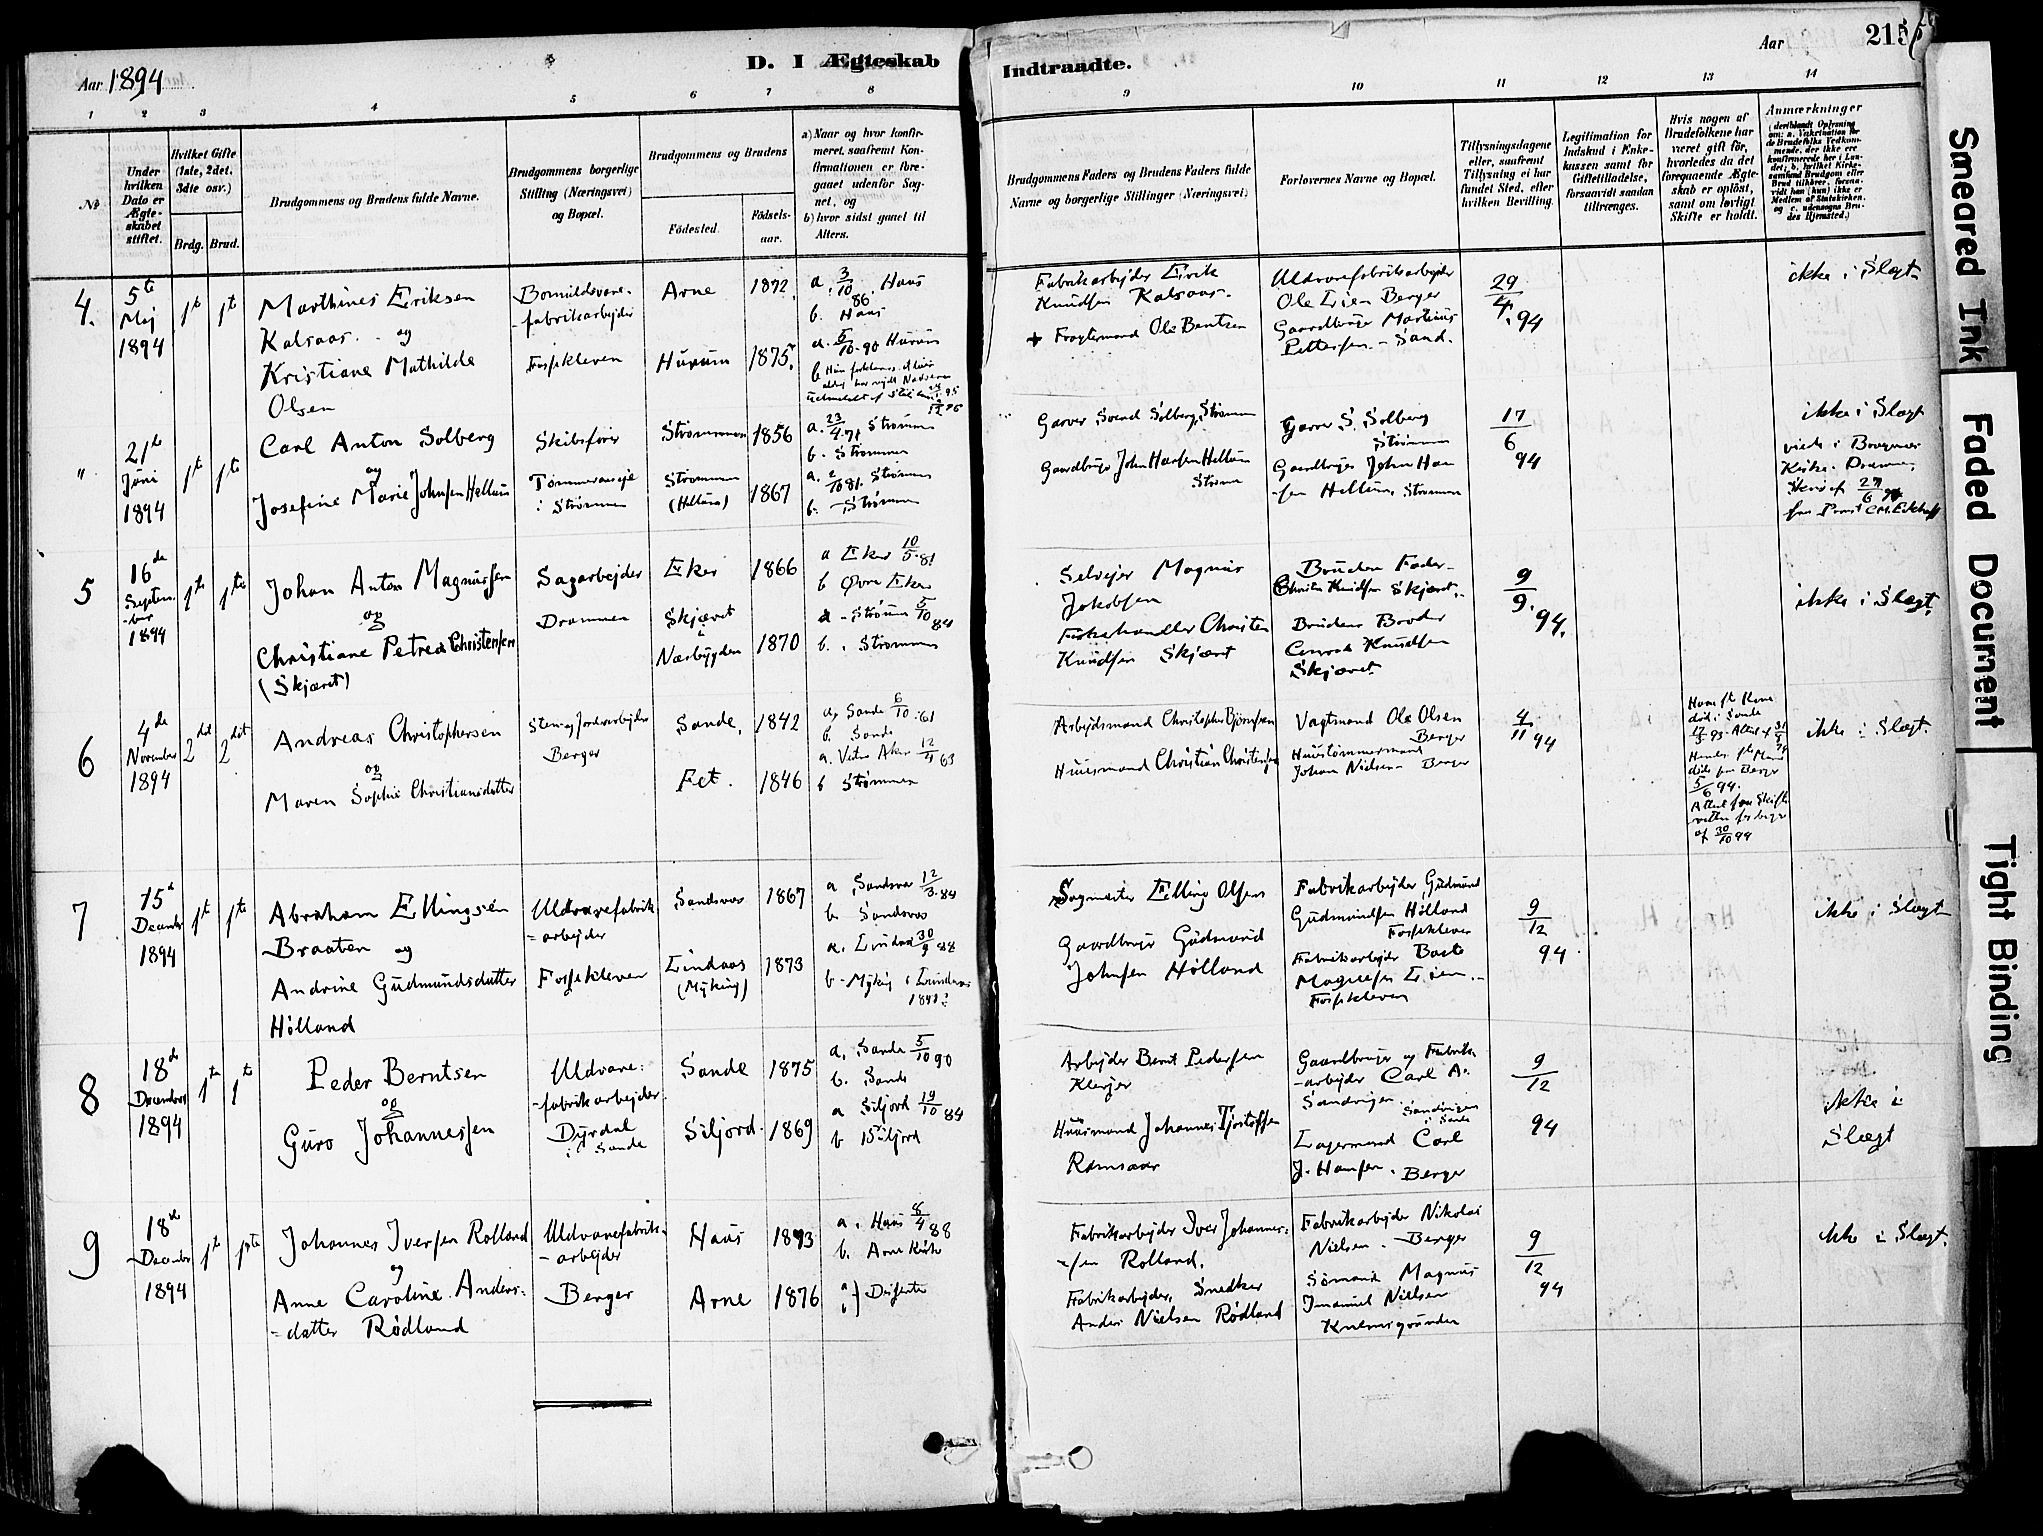 Aar 1894
D. I Ægteskab
Indtraadte.
Aar
215
1 2 3 4 5 6 7 8 9 10 11 12 13 14
№
Under hvilken Dato er Ægteskabet stiftet.
Hvilket Gifte (1ste, 2det, 3die osv.)
Brdg. Brud.
Brudgommens og Brudens fulde Navne.
Brudgommens borgerlige Stilling (Næringsvei) og Bopæl.
Brudgommens og Brudens
Fødested.
Fødselsaar.
a) Naar og hvor konfirmeret, saafremt Konfirmationen er foregaaet udenfor Sognet, og
b) hvor sidst gaaet til Alters.
Brudgommens Faders og Brudens Faders fulde Navne og borgerlige Stillinger (Næringsvei)
Forlovernes Navne og Bopæl.
Tillysningsdagene eller, saafremt Tillysning ei har fundet Sted, efter hvilken Bevilling.
Legitimation for Indskud i Enkekassen samt for Giftetilladelse, forsaavidt saadan tiltrænges.
Hvis nogen af Brudefolkene har været gift før, hvorledes da det foregaaende Ægteskab er opløst, samt om lovligt Skifte er holdt.
Anmærkninger
4.
5te Maj 1894
1ste 1ste
Marthines Eriksen
Kalsaas. og
Kristiane Mathilde
Olsen
Bomuldsvare-
-fabrikarbejder
Fossekleven
Arne 1872.
Hurum 1875.
a. 3/10 86. Haus
b. Haus
a. 5/10 90 Hurum
Fabrikarbejder Eirik
Knudsen Kalsaas.
+ Fragtemand Ole Bentsen
Uldvarefabrikarbejder
Ole Lien Berger
Gaardbruger Martinus
Pettersen - Sand.
29/4. 94
ikke i Slægt.
"
21de Juni 1894
1ste 1ste
Carl Anton Solberg
og
Josefine Marie Johnsen Hellum
Skibsfører
i Strømmen
Strømmen 1856
Strømmen (Hellum) 1867
a. 23/4 71 Strømmen
b. Strømmen
a. 2/10 81. Strømmen
b. Strømmen
Garver Svend Solberg, Strømmen
Gaardbruger John Hansen Hellum
Strømm
Garver S. Solberg
Strømm
Gaardbruger John Han
-sen Hellum, Strømmen
17/6 94
ikke i Slægt
viede i Bragernes
Kirke. Drammen
5
16de September 1894
1ste 1ste
Johan Anton Magnussen
og
Christiane Petrea Christensen
(Skjæret)
Sagarbejder
Drammen
Eker 1866
Skjæret i Nærbygden 1870
a Eker 10/5 81
b Øvre Eker
a - Strømm 5/10 84
b. Strømmen
Selvejer Magnus
Jakobsen
Fiskehandler Christen
Knudsen Skjæret
Brudens Fader
Christen Knudsen Skjæret.
Brudens Broder
Conrad Knudsen
Skjæret
9/9. 94.
ikke i Slægt.
6
4de November 1894
2det 2det
Andreas Christophersen
og
Maren Sophie Christiansdatter
Sten og Jordarbejder
Berger
Sande. 1842
Fet. 1846
a, Sande 6/10 61
b. Sande
a. Vestre Aker 12/4 63
b Strømmen
Arbejdsmand Christopher Bjørnsen
Huusmand Christian Christensen
Vagtmand Ole Olsen
Berger
Huustømmermand
Johan Nielsen - Berger
4/11 94
Hans ft Kone
død i Sande
død paa Berger
5/6 94.
af 30/10 94
ikke i Slægt.
7
15de December 1894
1ste 1ste
Abraham Ellingsen
Braaten og
Andrine Gudmundsdatter
Hølland
Uldvarefabrik
-arbejder
Fossekleven
Sandsvær 1867
Lindaas (Myking) 1873
a Sandsvær 12/3 84
b. Sandsvær
a. Lindaas 30/9 88
b - Myking i Lindaas
Sagmester Elling Olsen
Gaardbruger Gudmund
Johnsen Hølland
Fabrikarbejder Gudmund
Gudmundsen Hølland
Fossekleven
Fabrikarbejder
Magnesen Lien
Fossekleven
9/12 94
ikke i Slægt
8
18de December 1894
1ste 1ste
Peder Berntsen
og
Guro Johannessen
Uldvare-
-fabrikarbejder.
Dyrdal
i Sande
Sande 1875
Siljord 1869
a, Sande 5/10 90
b. Sande
a Siljord 19/10 84
b Siljord
Arbejder Bernt Pedersen
Klevjer
Huusmand Johannes Tjostolfsen
Ramsaas
Gaardbruger og Fabrik-
-arbejder Carl A.
Sandvigen. Sandvigen
i Sande
Lagermand Carl
J. Hansen. Berger
9/12 94
ikke i
Slægt
9
18de December 1894
1ste 1ste
Johannes Iversen Rolland
og
Anne Caroline Anders-
-datter Rødland
Uldvarefabriks-
-arbejder
Berger
Haus 1873
Arne 1876
a. Haus 8/4 88
b. Arne Kirke
a b } Dissenter
Fabrikarbejder Iver Johannes-
-sen Rolland.
Fabrikarbejder, Snedker
Anders Nielsen Rødland
Fabrikarbejder Nikolai
Nielsen. Berger
Sømand Magnus
Imanuel Nielsen
9/12 94
ikke i Slægt.
Smeared Ink
Faded Document
Tight Binding